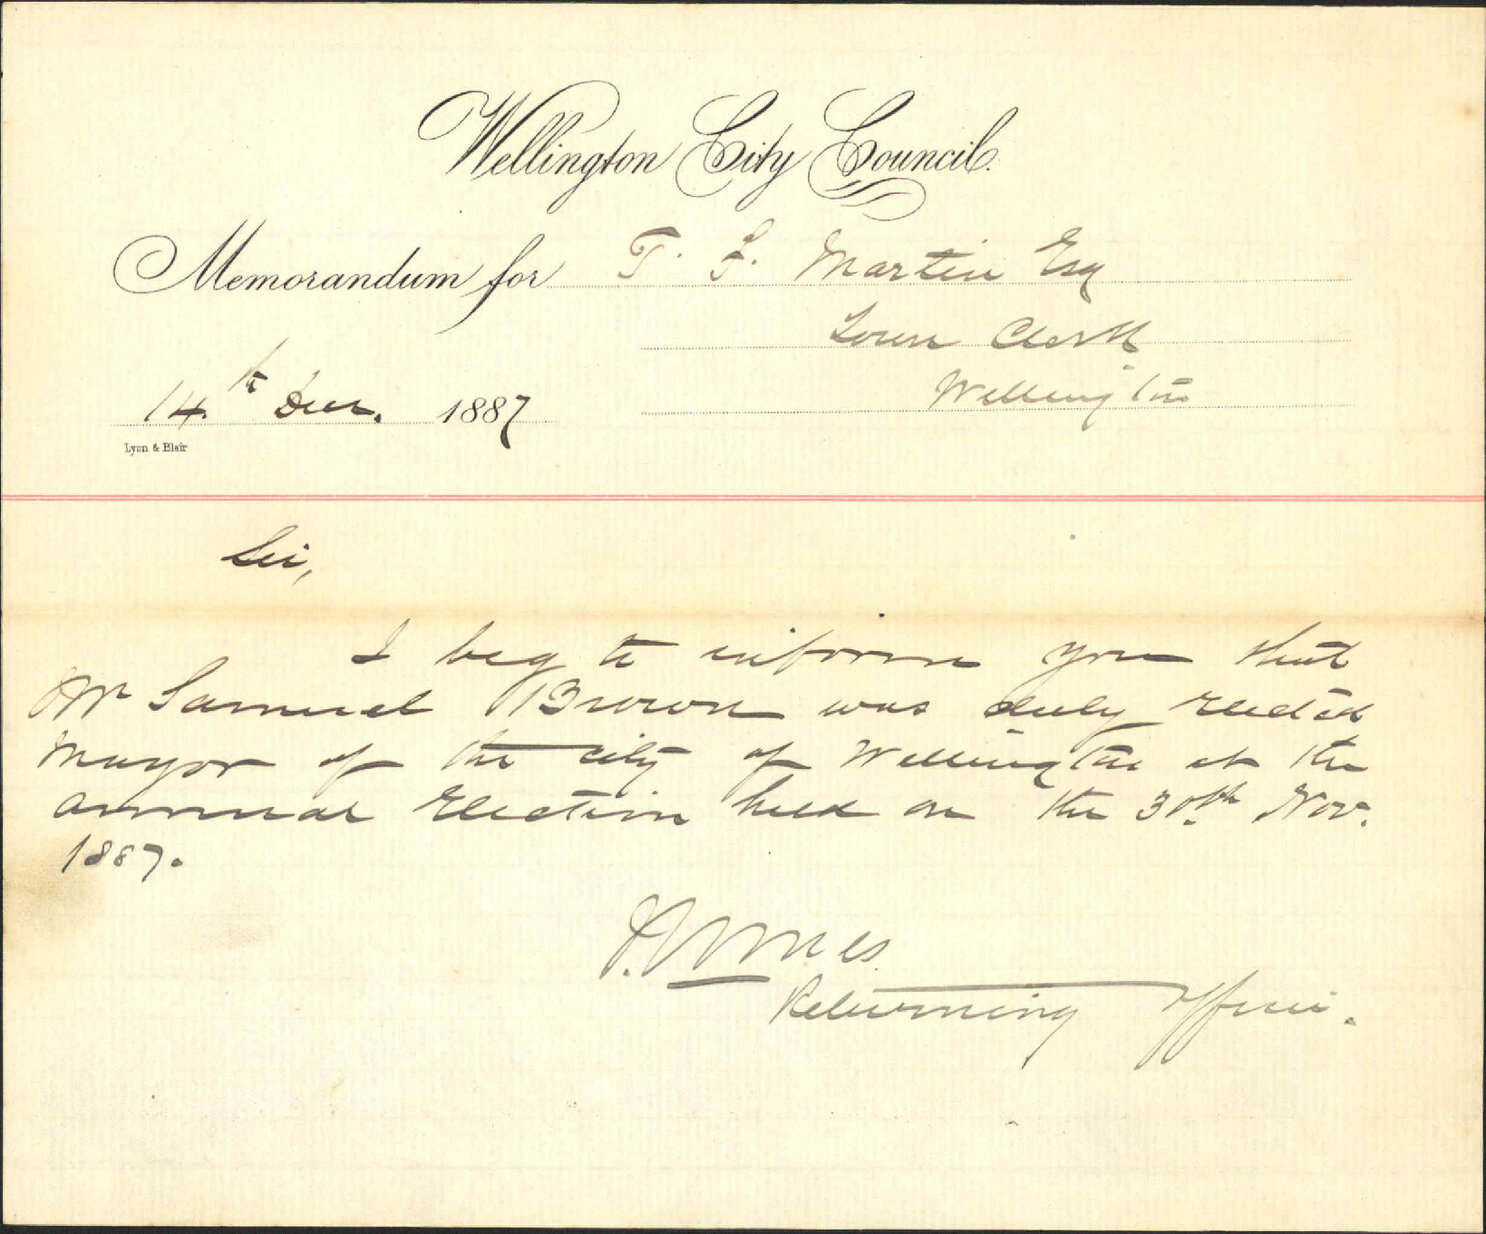 Wellington City Council.
Memorandum for T. F. Martin Esq
Town Clerk
Wellington
14th Dec. 1887
Lyon & Blair
Sir,
I beg to inform you that
Mr Samuel Brown was duly elected
Mayor of the city of Wellington at the
annual Election held on the 30th Nov.
1887.
Returning Officer.